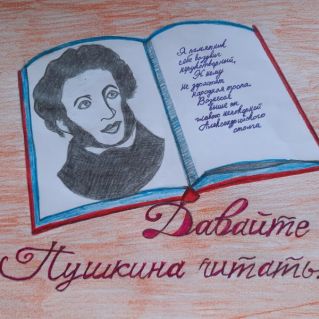 Я памятник
себе воздвиг
нерукотворный,
К нему
не зарастёт
народная тропа.
Вознёсся
выше он
главою непокорной
Александрийского
столпа
Давайте
Пушкина читать!